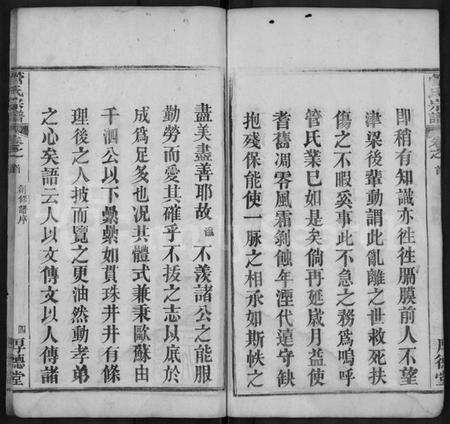 即稍有知識亦徃徃膈膜前人不望
津梁後輩動謂此亂離之世救死扶
傷之不暇奚事此不急之務爲嗚呼
管氏業已如是矣倘再延歲月益使
耆舊凋零風霜剝蝕年湮代遠守缺
抱殘保能使一脉之相承如斯帙之
管氏宗譜
卷之首
厚德堂
盡美盡善耶故 不羨諸公之能服
勤勞而愛其確乎不拔之志以底於
成爲足多也况其體式兼秉歐蘇由
千泗公以下纍纍如貫珠井井有條
理後之人披而覽之更油然動孝弟
之心矣語云人以文傳文以人傳諸
管氏宗譜
卷之首
創修譜序
四
厚德堂